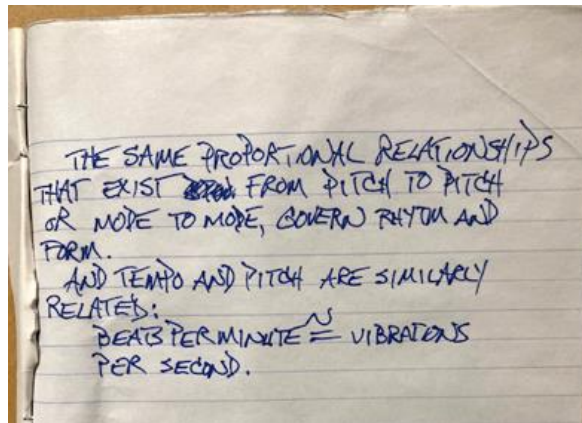 THE SAME PROPORTIONAL RELATIONSHIPS
THAT EXIST FROM PITCH TO PITCH
OR MODE TO MODE, GOVERN RHYTHM AND
FORM.
AND TEMPO AND PITCH ARE SIMILARLY
RELATED:
BEATS PER MINUTE ≅ VIBRATIONS
PER SECOND.